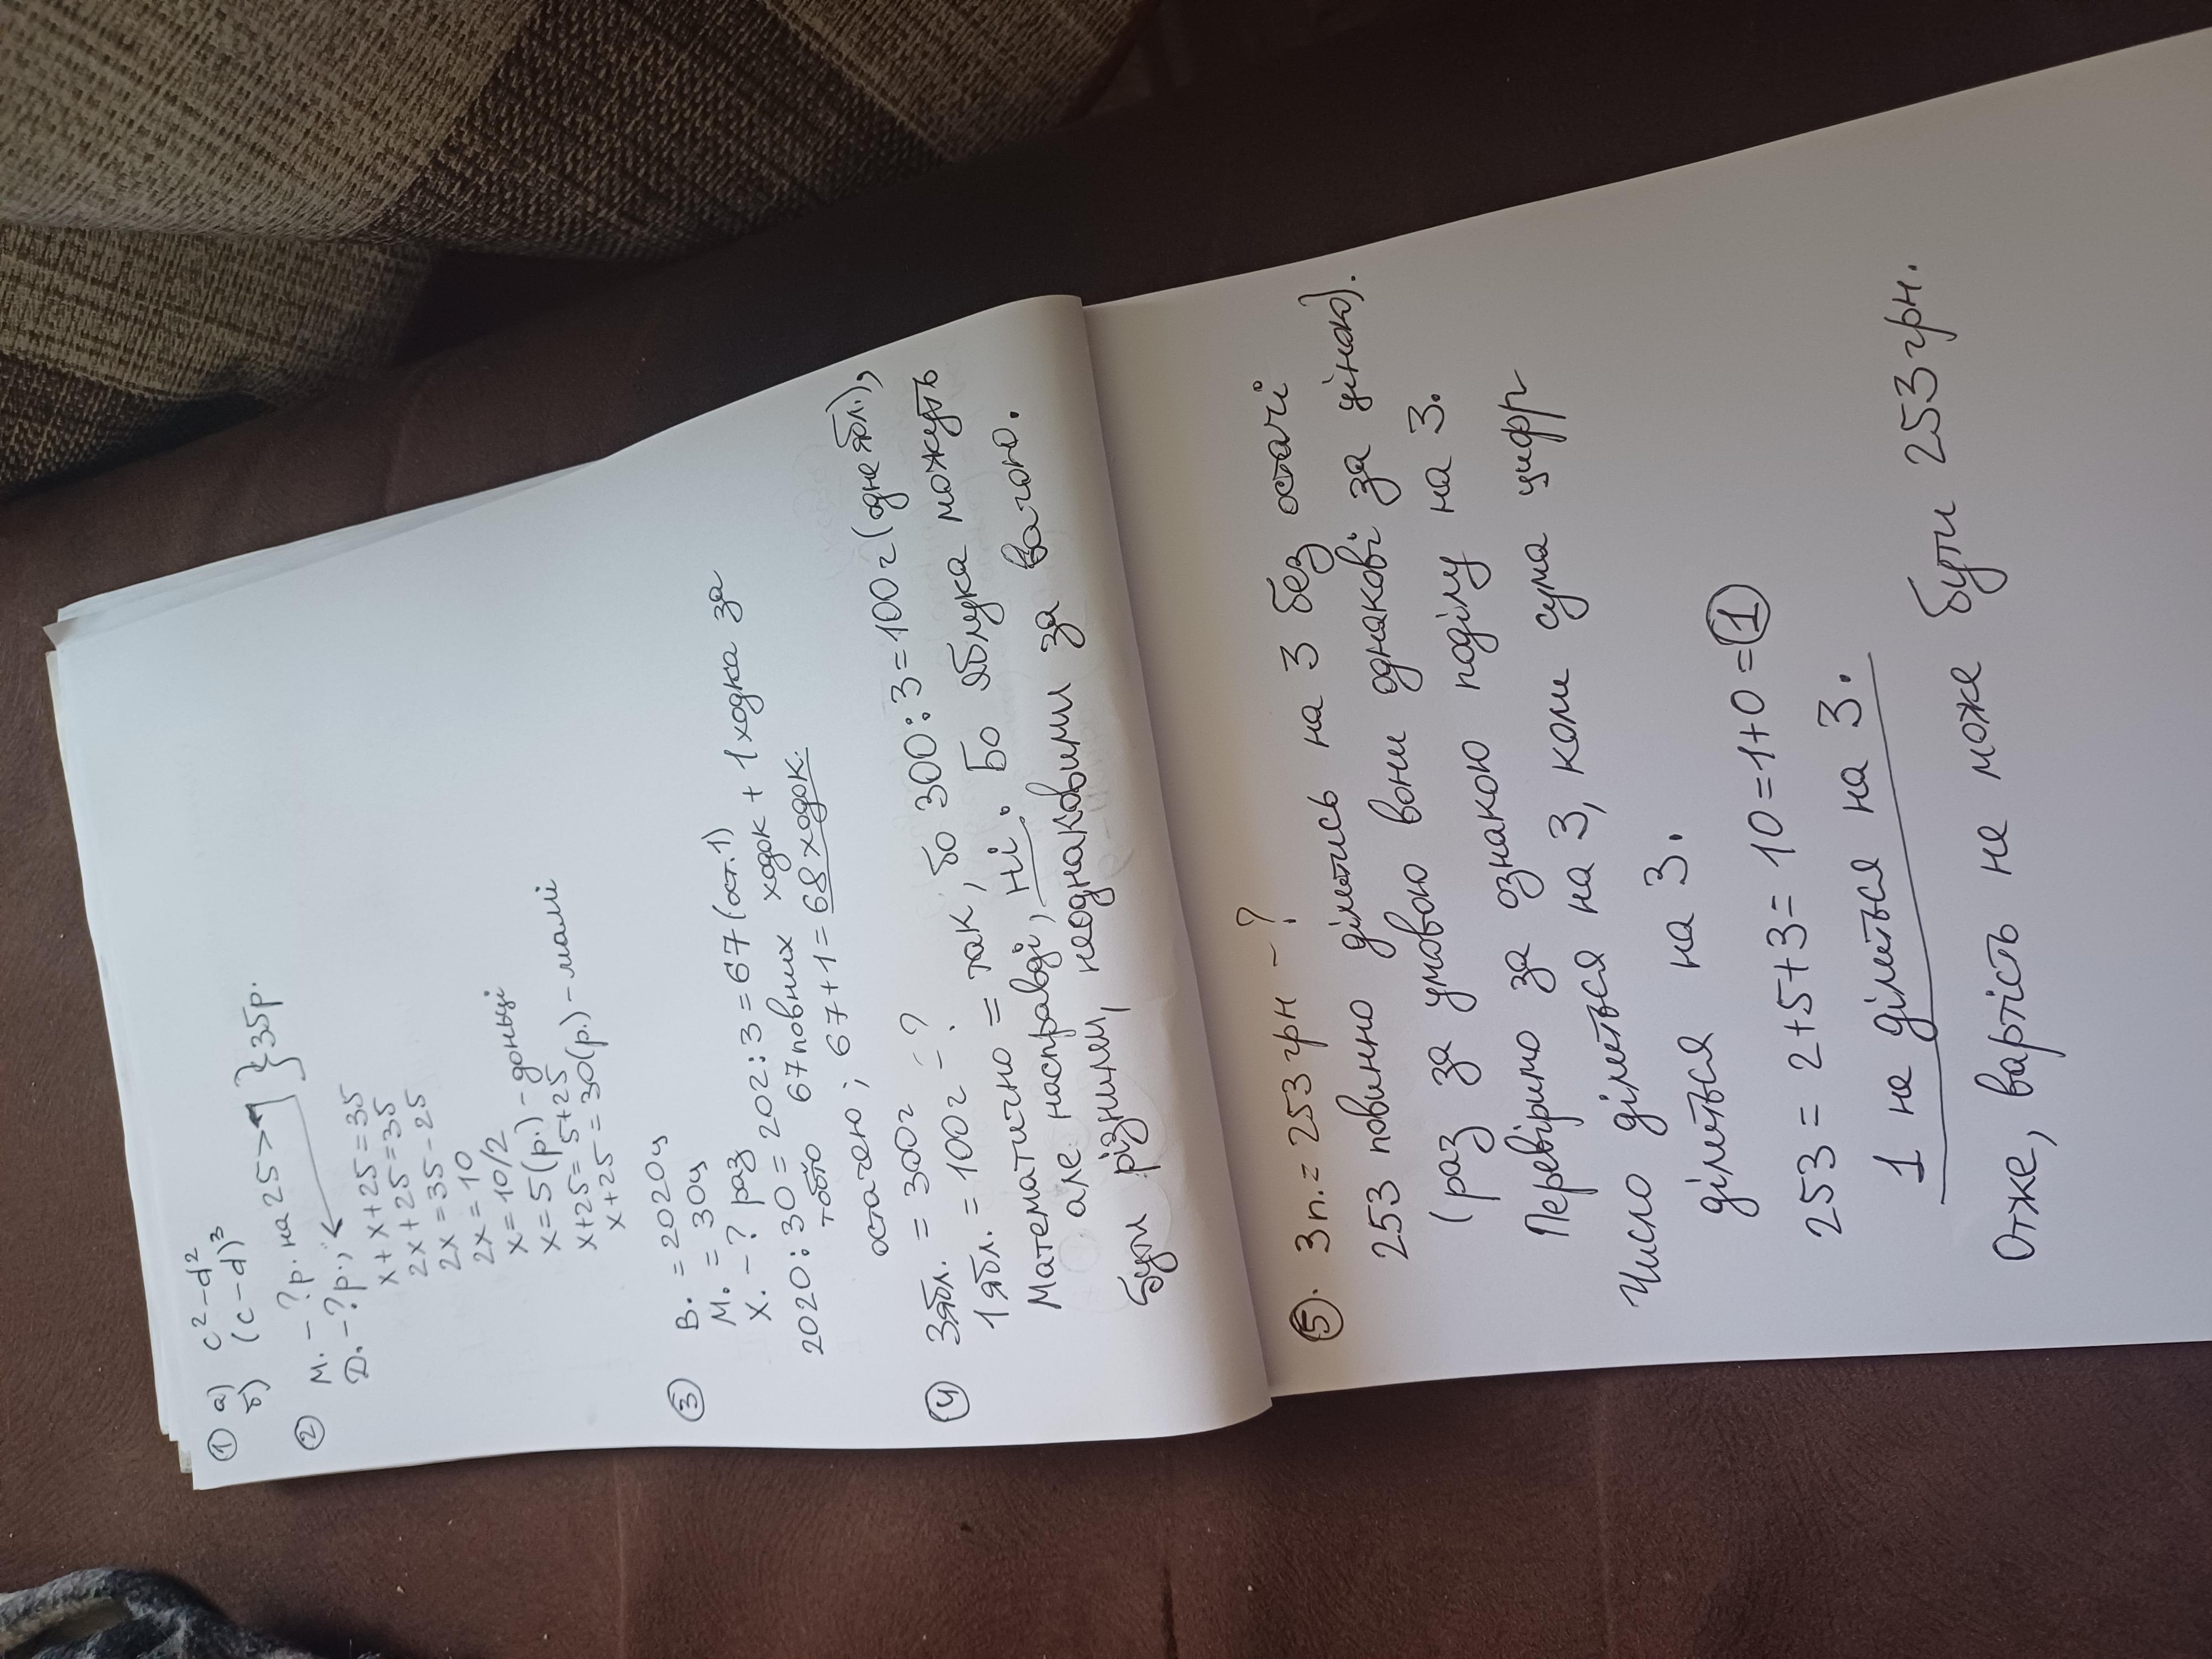 ① а) c² - d²
б) (c - d)³
② М. - ? р. на 25 > } 35р.
D. - ? р.,
x + x + 25 = 35
2x + 25 = 35
2x = 35 - 25
2x = 10
x = 10/2
x = 5 (р.) - доньці
x + 25 = 5 + 25
x + 25 = 30 (р.) - мамі
③ В. = 2020ц
М. = 30ц
Х. - ? раз
2020 : 30 = 202 : 3 = 67 (ост. 1)
тобто 67 повних ходок + 1 ходка за
остачею; 67 + 1 = 68 ходок.
④ 3ябл. = 300г
1ябл. = 100г - ?
Математично = так, бо 300 : 3 = 100г (одне ябл.),
але насправді, ні. Бо яблука можуть
бути різними, неоднаковими за вагою.
⑤. 3п. = 253 грн - ?
253 повинно ділитись на 3 без остачі
(раз за умовою вони однакові за ціною).
Перевіримо за ознакою поділу на 3.
Число ділиться на 3, коли сума цифр
ділиться на 3.
253 = 2 + 5 + 3 = 10 = 1 + 0 = ①
1 не ділиться на 3.
Отже, вартість не може бути 253 грн.